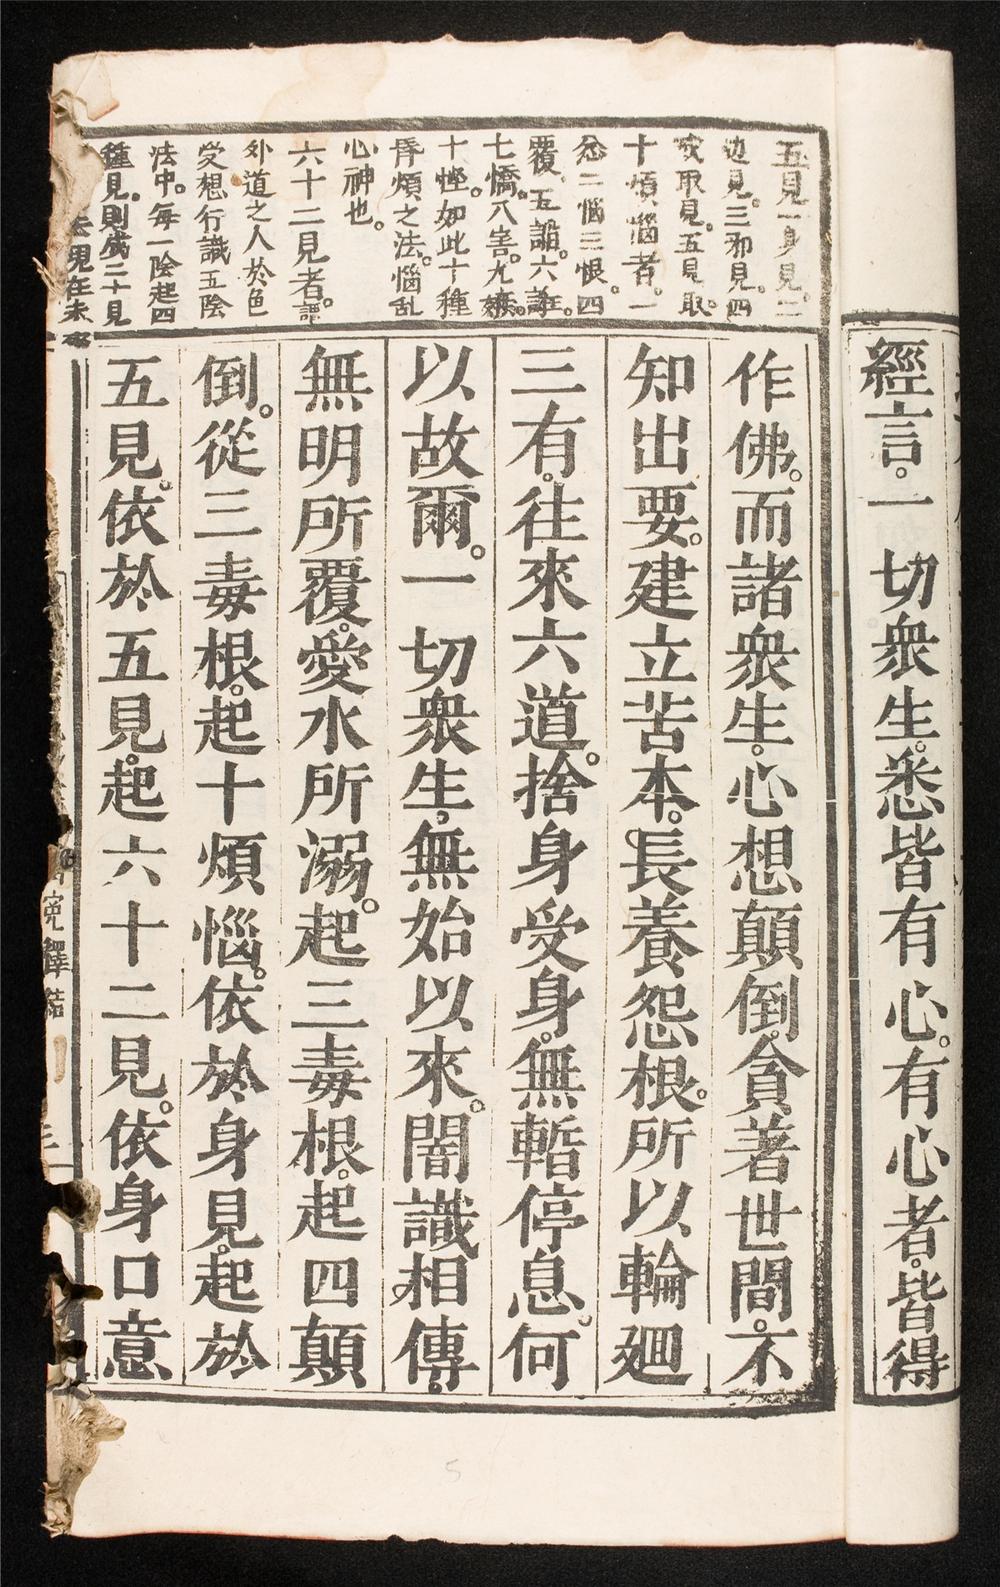 經言。一切衆生。悉皆有心。有心者。皆得
五見一身見。二
边見。三邪見。四
戒取見。五見取。
十煩惱者。一
忿二惱三恨。四
覆。五謟。六誑。
七憍。八害。九嫉。
十慳。如此十種
昏煩之法。惱乱
心神也。
六十二見者。謂
外道之人於色
受想行識五陰
法中。每一陰起四
種見。則成二十見
去現在未
作佛。而諸衆生。心想顛倒。貪著世間。不
知出要。建立苦本。長養怨根。所以輪廻
三有。往來六道。捨身受身。無暫停息。何
以故爾。一切衆生。無始以來。闇識相傳。
無明所覆。愛水所溺。起三毒根。起四顛
倒。從三毒根。起十煩惱。依於身見。起於
五見。依於五見。起六十二見。依身口意
寃釋結